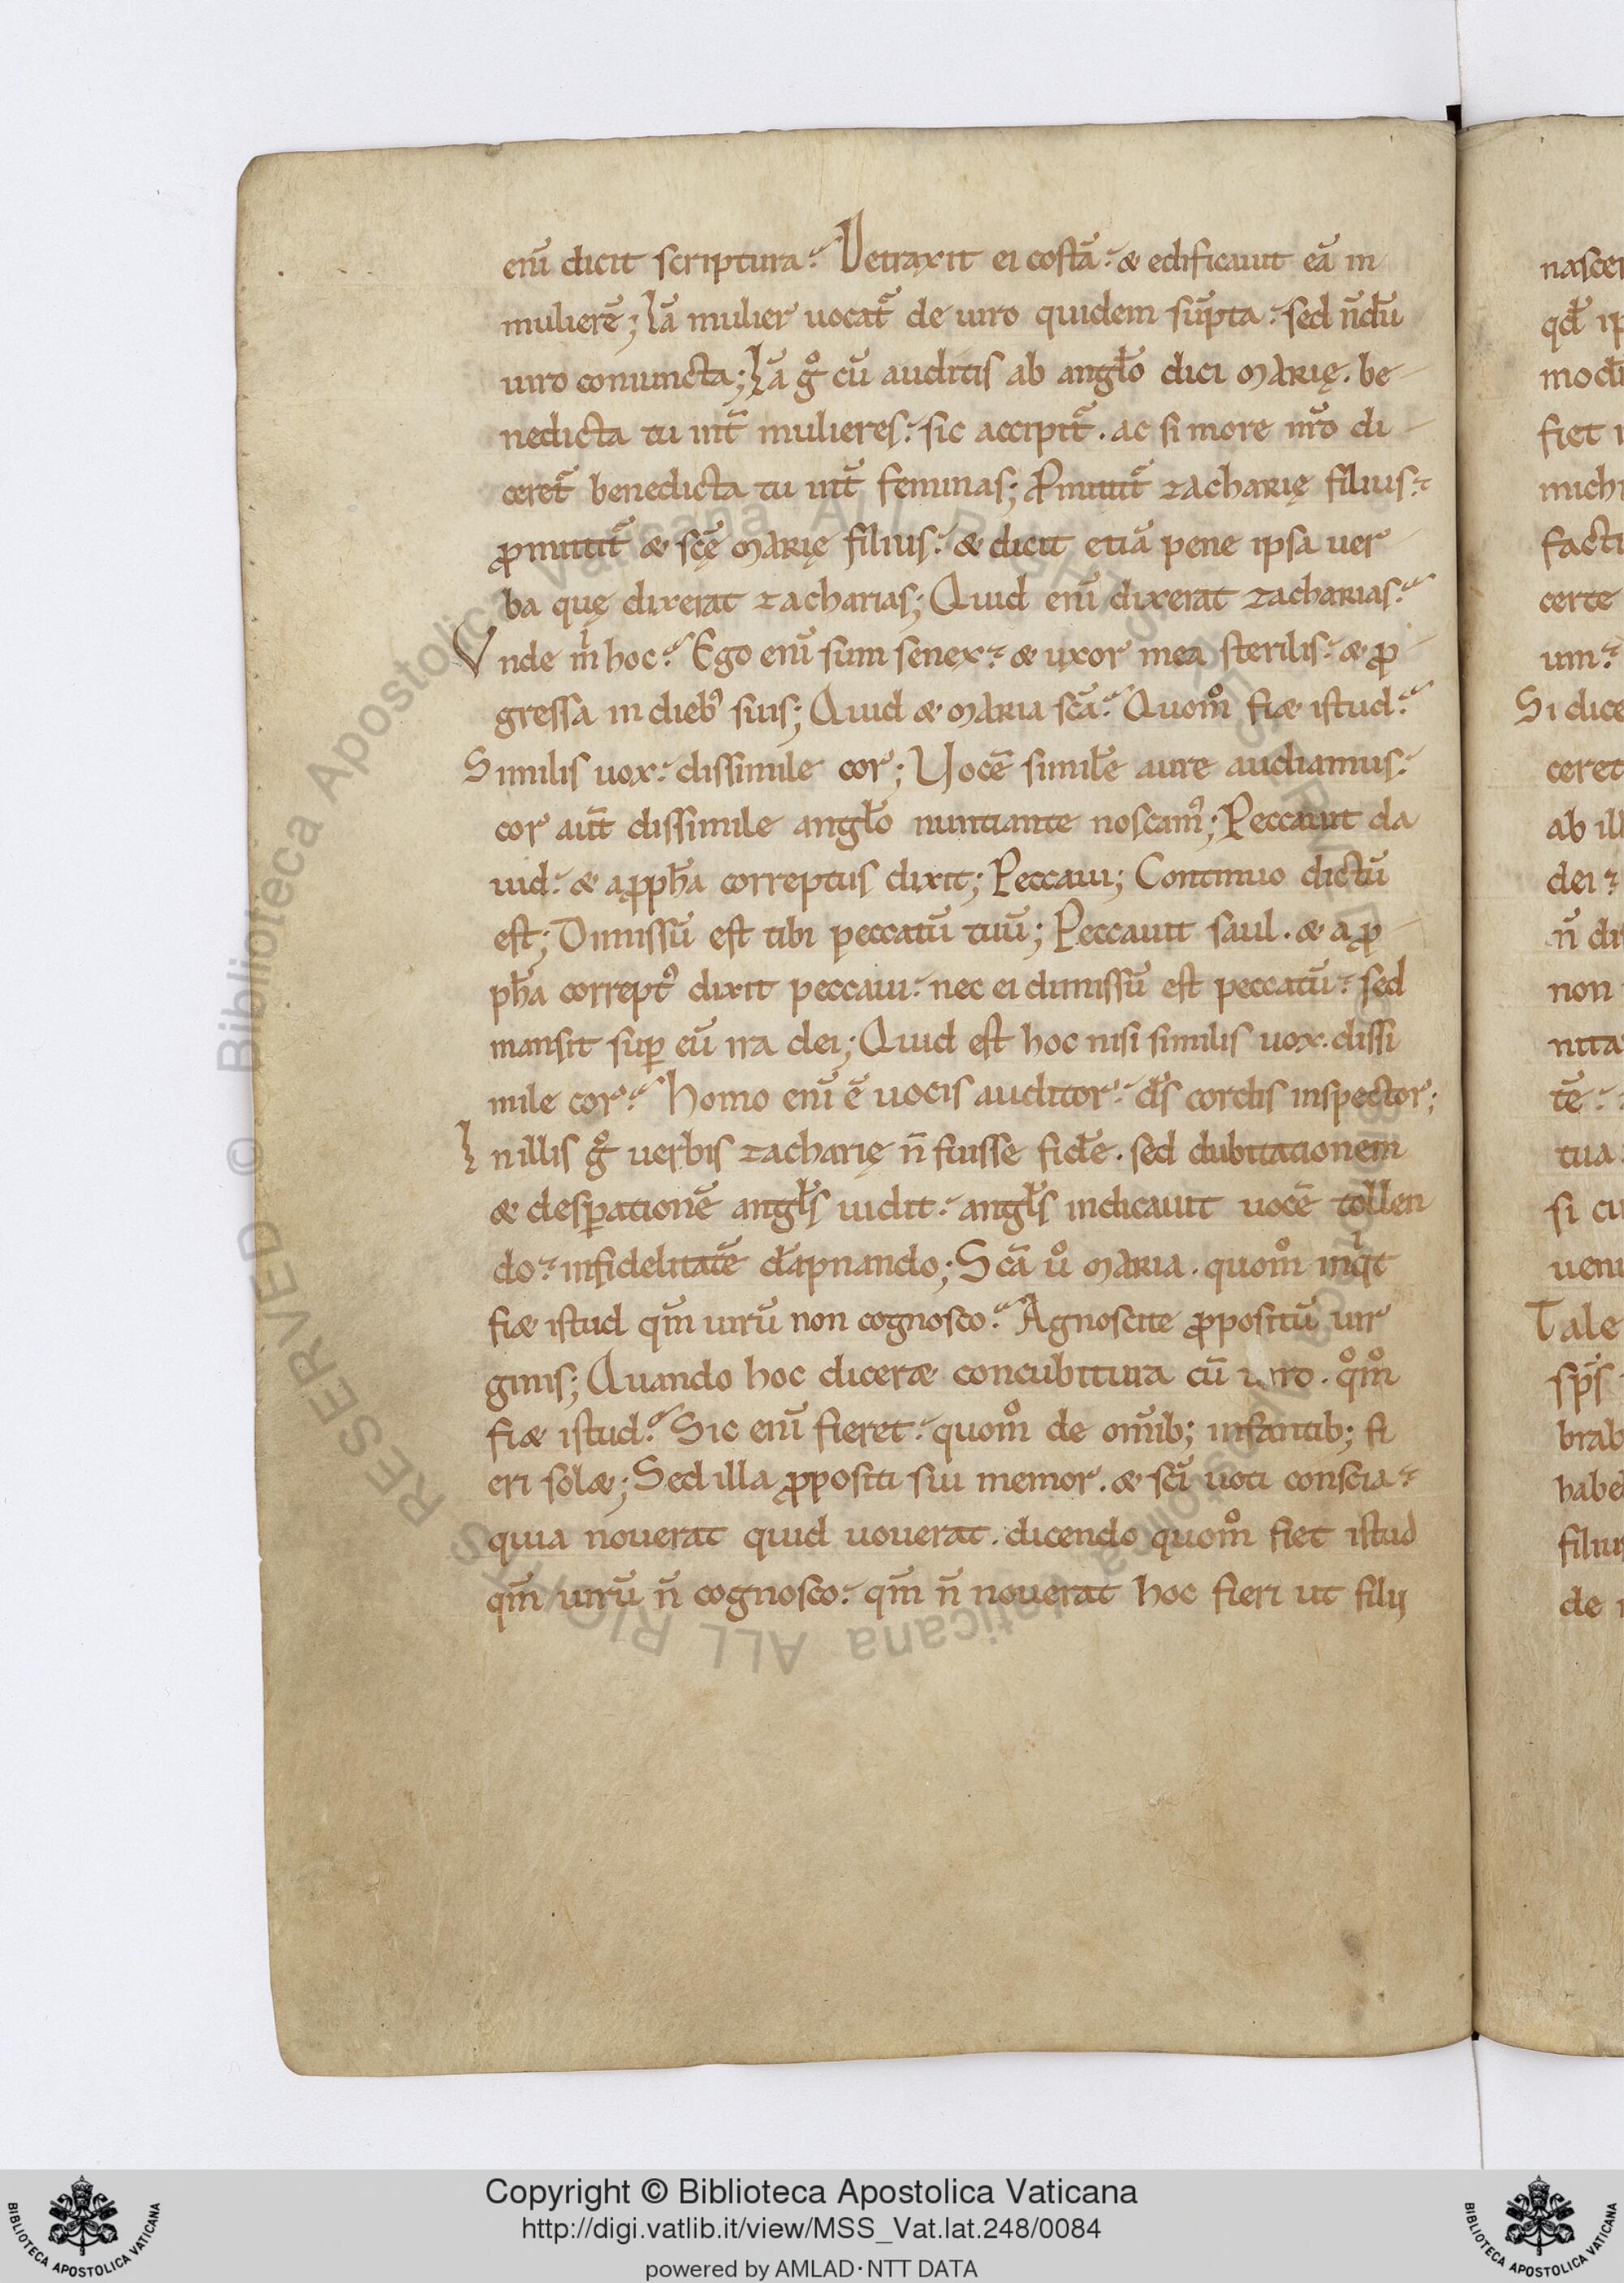 enī dicit scriptura. Detraxit ei costā. & edificauit eā in
mulierē; Iā mulier uocat̄ de uiro quidem sūpta. sed n̄dū
uiro coniuncta; Iā gͦ cū auditis ab angło dici MARIĘ. be
nedicta tu int̄ mulieres. sic accipit̄. ac si more nr̄o di
ceret̄ benedicta tu int̄ feminas; Ꝓmittit̄ zachARIĘ filius.
ꝓmittit̄ & sc̄ę MARIĘ filius. & dicit etiā pene ipsa uer
ba quę dixerat zacharias; Quid enī dixerat zachARIAS.
Vnde m̍ hoc. Ego enī sum senex. & uxor mea sterilis. & ꝓ
gressa in dieb᾽ suis; Quid & MARIA sc̄a. Quom̊ fi& istud.
Similis uox. dissimile cor; Vocē simił̄e aure audiamus.
cor aut̄ dissimile angło nuntiante noscam᾽; Peccauit da
uid. & a ꝓph̄a correptus dixit; Peccaui; Continuo dictū
est; Dimissū est tibi peccatū tuū; Peccauit saul. & a ꝓ
ph̄a corrept᾽ dixit peccaui. nec ei dimissū est peccatū. sed
mansit suꝑ eū ira dei; Quid est hoc nisi similis uox. dissi
mile cor. Homo enī ē uocis auditor. dr̄s cordis inspector;
In illis gͦ uerbis zacharię n̄ fuisse fidē. sed dubitationem
& desꝑationē angłs uidit. angłs indicauit uocē tollen
do. infidelitatē dāpnando; Sc̄a uͦ MARIA. quom̊ inqͥt
fi& istud qm̄ uirū non cognosco. Agnoscite ꝓpositū uir
ginis; Quando hoc dicer& concubitura cū uiro. qͦm̊
fi& istud. Sic enī fieret. quom̊ de om̄ib; infantib; fi
eri sol&; Sed illa ꝓpositi sui memor. & sc̄i uoti conscia.
quia nouerat quid uouerat. dicendo quom̊ fiet istud
qm̄ uirū n̄ cognosco. qm̄ n̄ nouerat hoc fieri ut filij
nascer
qd̄ ip
mod
fiet
michi
facti
certe
um.
Si dice
ceret
ab ill
dei
n̄ di
non
nita
tē.
tua
si cu
ueni
Tale
sp̄s
brab
habe
filiu
de
© Biblioteca Apostolica Vaticana ALL RIGHTS RESERVED
© Biblioteca Apostolica Vaticana ALL RIGHTS RESERVED
Copyright © Biblioteca Apostolica Vaticana
http://digi.vatlib.it/view/MSS_Vat.lat.248/0084
powered by AMLAD·NTT DATA
BIBLIOTECA APOSTOLICA VATICANA
BIBLIOTECA APOSTOLICA VATICANA